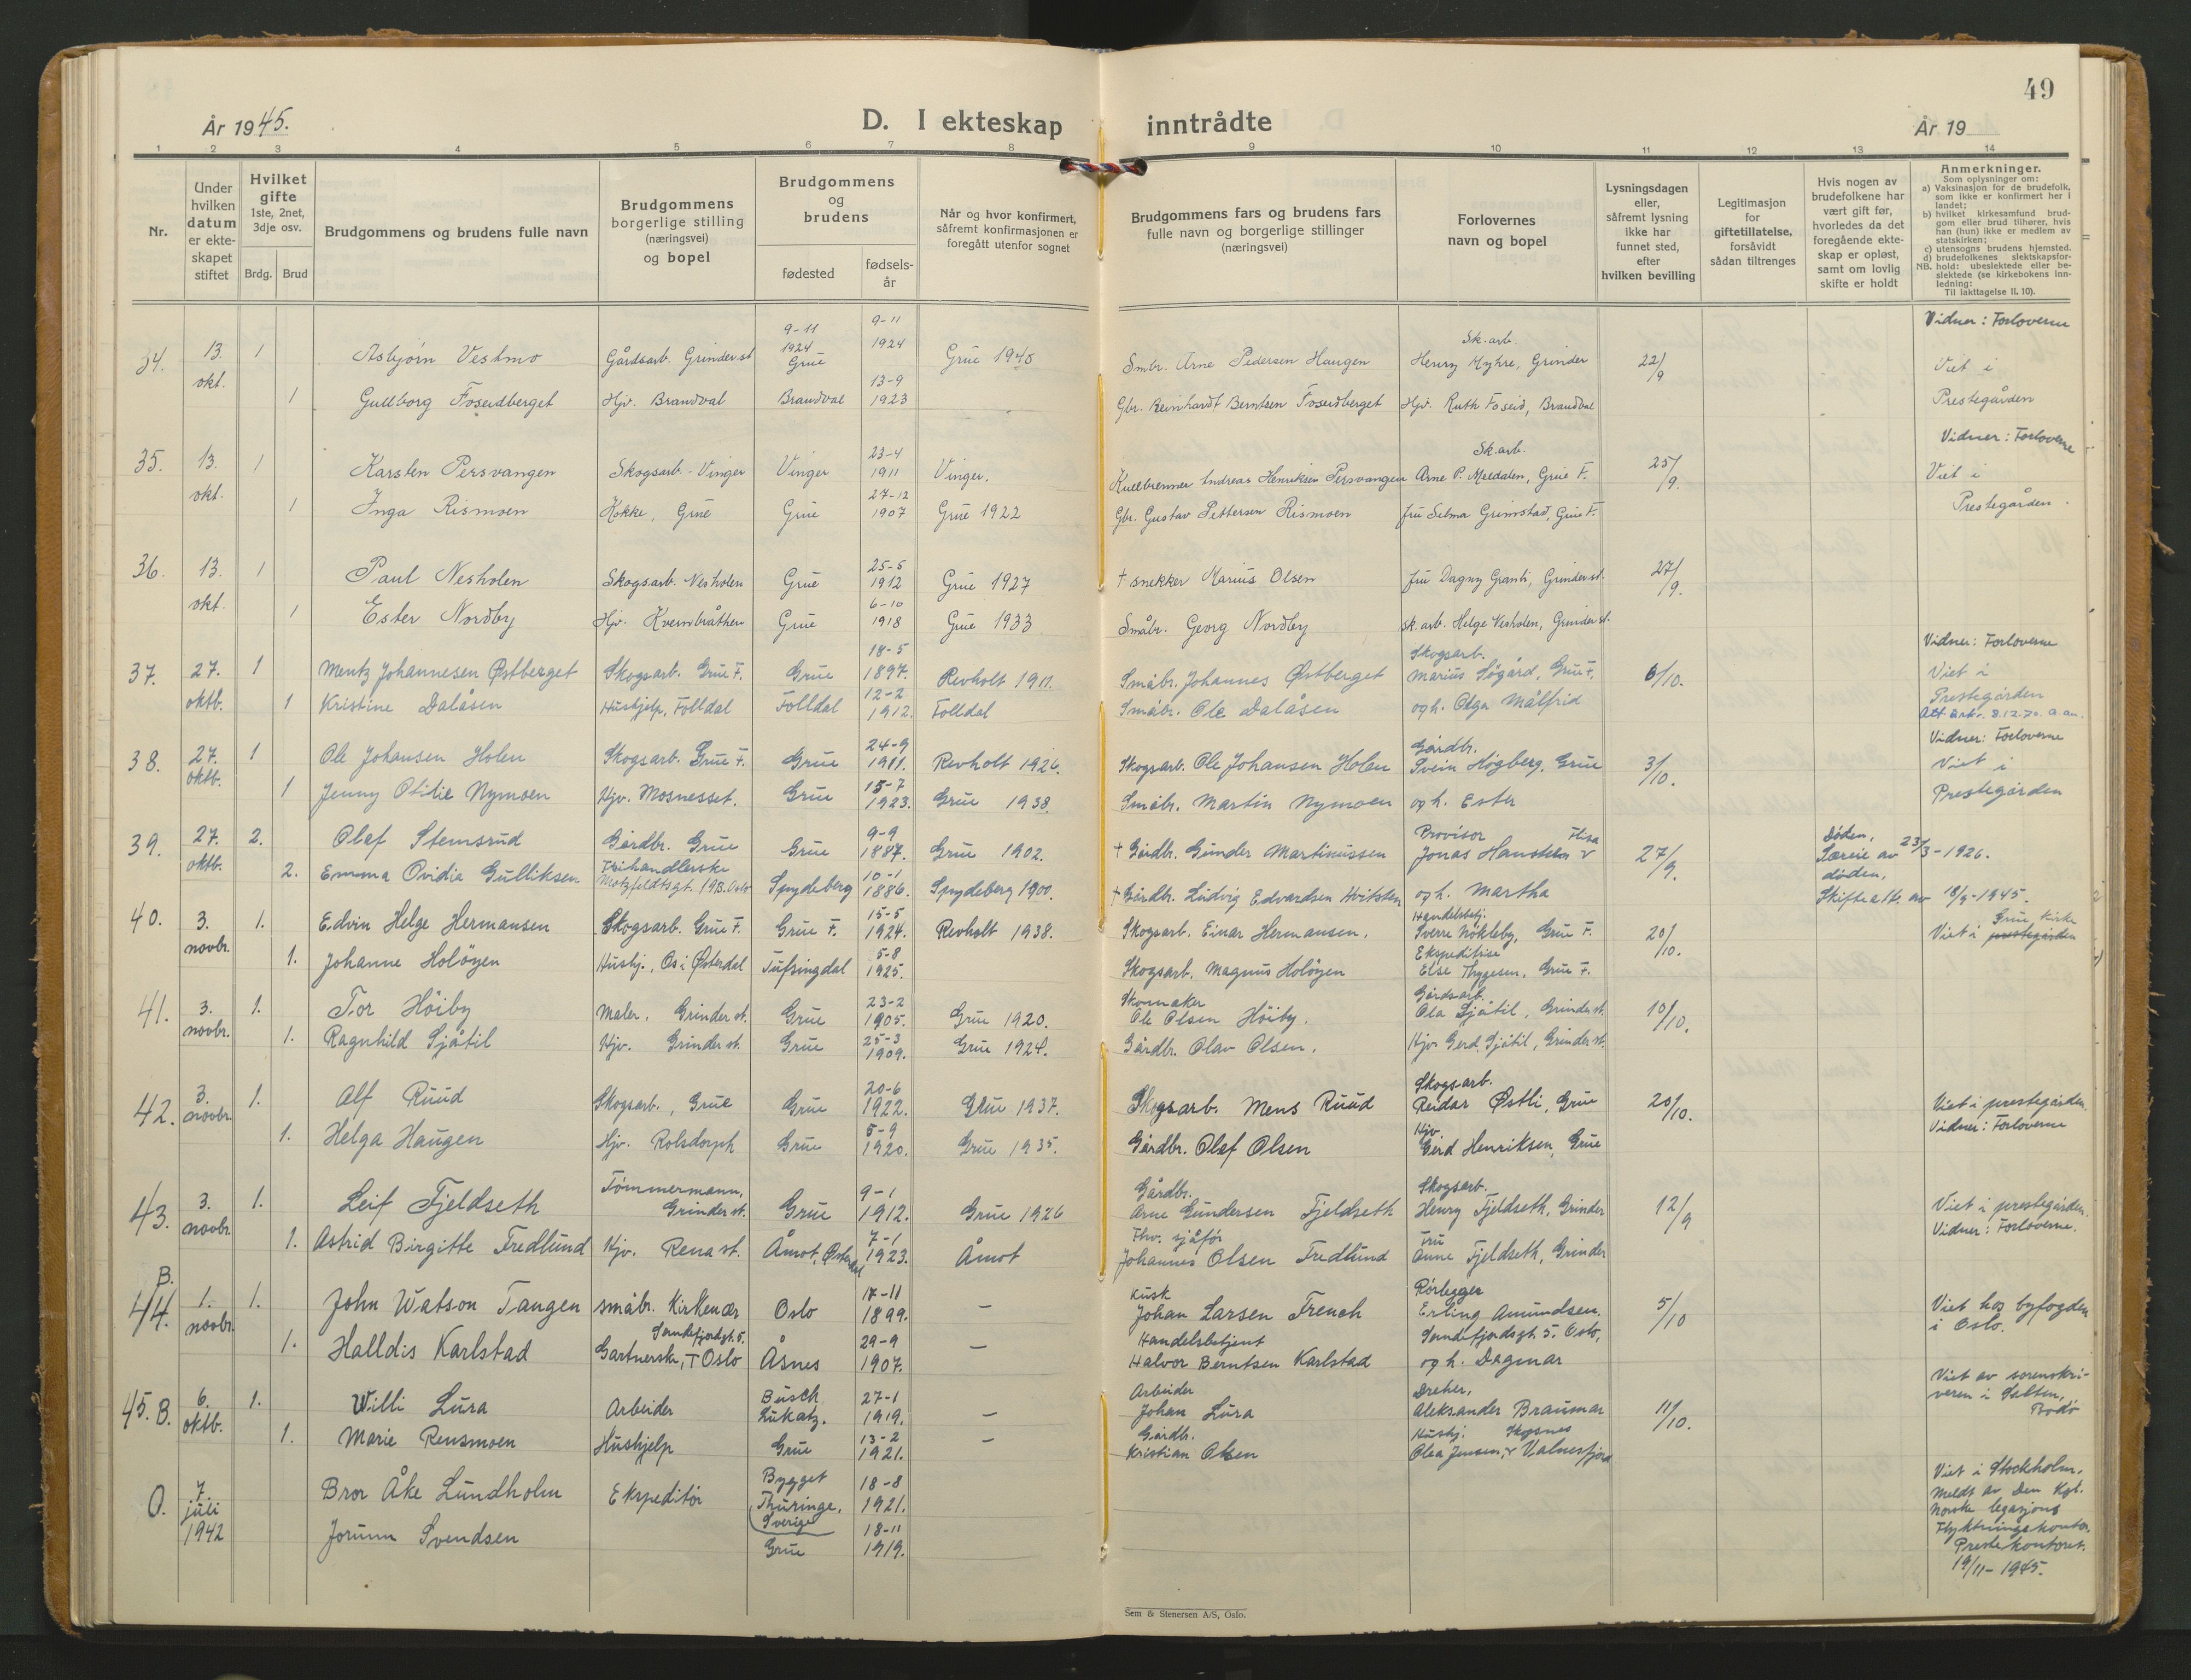 49
År 1945.
D. I ekteskap inntrådte
År 19
1 2 3 4 5 6 7 8 9 10 11 12 13 14
Nr.
Under hvilken datum er ekte-skapet stiftet
Hvilket gifte
1ste, 2net, 3dje osv.
Brdg. Brud
Brudgommens og brudens fulle navn
Brudgommens borgerlige stilling (næringsvei) og bopel
Brudgommens og brudens
fødested
fødsels-år
Når og hvor konfirmert, såfremt konfirmasjonen er foregått utenfor sognet
Brudgommens fars og brudens fars fulle navn og borgerlige stillinger (næringsvei)
Forlovernes navn og bopel
Lysningsdagen eller, såfremt lysning ikke har funnet sted, efter hvilken bevilling
Legitimasjon for giftetillatelse, forsåvidt sådan tiltrenges
Hvis nogen av brudefolkene har vært gift før, hvorledes da det foregående ekte-skap er opløst, samt om lovlig skifte er holdt
Anmerkninger.
Som oplysninger om:
a) Vaksinasjon for de brudefolk, som ikke er konfirmert her i landet;
b) hvilket kirkesamfund brud-gom eller brud tilhører, hvis han (hun) ikke er medlem av statskirken;
c) utensogns brudens hjemsted.
d) brudefolkenes slektskapsfor-hold: ubeslektede eller be-slektede (se kirkebokens inn-ledning:
NB. Til iakttagelse II. 10).
34. 13. okt. 1 Asbjørn Vestmo Gårdsarb. Grinder st 9-11 1924 Grue 9-11 1924 Grue 1940 Smbr. Arne Pedersen Haugen Sk.arb. Henry Myhre, Grinder 22/9 Vidner: Forloverne Viet i
1 Gullborg Foseidberget Hjv. Brandval Brandval 13-9 1923 Gbr. Reinhardt Berntsen Foseidberget Hjv. Ruth Foseid, Brandval Prestegården
35. 13. okt. 1 Karsten Persvangen Skogsarb. Vinger Vinger 23-4 1911 Vinger. Kullbrenner Andreas Henriksen Persvangen Sk.arb. Arne P. Meldalen, Grue F. 25/9. Vidner: Forloverne Viet i
1 Inga Rismoen Kokke, Grue Grue 27-12 1907 Grue 1922 Gbr. Gustav Pettersen Rismoen fru Selma Grimstad, Grue F. Prestegården.
36. 13. okt. 1 Paul Nesholen Skogsarb. Nesholen Grue 25-5 1912 Grue 1927 † snekker Marius Olsen fru Dagny Granli, Grinder st. 27/9.
1 Ester Nordby Hjv. Kvernbråthen Grue 6-10 1918 Grue 1933 Småbr. Georg Nordby sk.arb. Helge Nesholen, Grinder st.
37. 27. oktb. 1 Mentz Johannesen Østberget Skogsarb. Grue F. Grue 18-5 1897. Revholt 1911. Småbr. Johannes Østberget Skogsarb. Marius Sögård, Grue F. 6/10. Vidner: Forloverne Viet i
1 Kristine Dalåsen Hushjelp, Folldal Folldal 12-2 1912. Folldal Småbr. Ole Dalåsen og h. Olga Målfrid Prestegården
Att. 8.12.70.
38. 27. oktb. 1 Ole Johansen Holen Skogsarb. Grue F. Grue 24-9 1911. Revholt 1926. Skogsarb. Ole Johansen Holen Gårdbr. Svein Høgberg, Grue 3/10. Vidner: Forloverne Viet i
1 Jenny Otilie Nymoen Hjv. Mosnesset. Grue 15-7 1923. Grue 1938. Småbr. Martin Nymoen og h. Ester Prestegården
39. 27. oktb. 2. Olaf Stemsrud Gårdbr. Grue Grue 9-9 1887. Grue 1902. † Gårdbr. Gunder Martinussen Provisor Jonas Hanstelen Flisa 27/9. Døden, Særeie av 23/3-1926.
2. Emma Ovidia Gulliksen Frihandlerske Motzfeldtsgt. 19B. Oslo Spydeberg 10-1 1886. Spydeberg 1900. † Gårdbr. Ludvig Edvardsen Hvitsten og h. Martha døden, Skifteatt. av 18/9-1945.
40. 3. novbr. 1. Edvin Helge Hermansen Skogsarb. Grue F. Grue F. 15-5 1924. Revholt 1938. Skogsarb. Einar Hermansen. Handelsbetj. Sverre Nökleby, Grue F. 20/10. Viet i prestegården Grue kirke
1. Johanne Holöyen Hushj., Os i Østerdal Tufsingdal 5-8 1925. Skogsarb. Magnus Holöyen Ekspeditrise Else Thygesen, Grue F.
41. 3. novbr. 1. Tor Höiby Maler, Grinder st. Grue 23-2 1905. Grue 1920. Skomaker Ole Olsen Höiby. Gårdsarb. Ola Sjåtil, Grinder st. 10/10.
1. Ragnhild Sjåtil Hjv. Grinder st. Grue 25-3 1909. Grue 1924. Gårdbr. Olav Olsen. Hjv. Gerd Sjåtil, Grinder st.
42. 3. novbr. 1. Alf Ruud Skogsarb., Grue Grue 20-6 1922. Grue 1937. Skogsarb. Mens Ruud Skogsarb. Reidar Østli, Grue 20/10. Viet i prestegården.
1. Helga Haugen Hjv. Rolsdorph Grue 5-9 1920. Grue 1935. Gårdbr. Olaf Olsen Hjv. Gerd Henriksen, Grue Vidner: Forloverne
43. 3. novbr. 1. Leif Fjeldseth Tömmermann, Grinder st. Grue 9-1 1912. Grue 1926 Gårdbr. Arne Gundersen Fjeldseth Skogsarb. Henry Fjeldseth, Grinder 12/9 Viet i prestegården.
1. Astrid Birgitte Fredlund Hjv. Rena st. Åmot, Østerdal 7-1 1923. Åmot Fhv. sjåför Johannes Olsen Fredlund Fru Anne Fjeldseth, Grinder Vidner: Forloverne.
B. 44. 1. novbr. 1. John Watson Tangen småbr. Kirkenær Oslo 17-11 1899. - Kusk Johan Larsen French Rörlegger Erling Amundsen. 5/10 Viet hos byfogden i Oslo.
1. Halldis Karlstad Gartnerske, Sandefjordsgt. 5. Oslo Åsnes 29-9 1907. - Handelsbetjent Halvor Berntsen Karlstad Sandefjordsgt. 5. Oslo, og h. Dagmar
45. B. 6. oktb. 1. Willi Lura Arbeider Busch Lukatz. 27-1 1919. - Arbeider Johan Lura Dreher, Aleksander Braumar 11/10. Viet av sorenskri-veren i Salten, Bodö
1. Marie Rensmoen Hushjelp Grue 13-2 1921. - Gårdbr. Kristian Olsen Hushj. Olea Jensen, Skogsnes Valnesfjord
O. 7. juli 1942 Bror Åke Lundholm Ekspeditör Bygget Thuringe, Sverige 18-8 1921. Viet i Stockholm. Meldt av Den Kgl. Norske legasjons Flyktningskontor.
Jorunn Svendsen Grue 18-11 1919. Prestekontoret. 19/11-1945.
Sem & Stenersen A/S, Oslo.